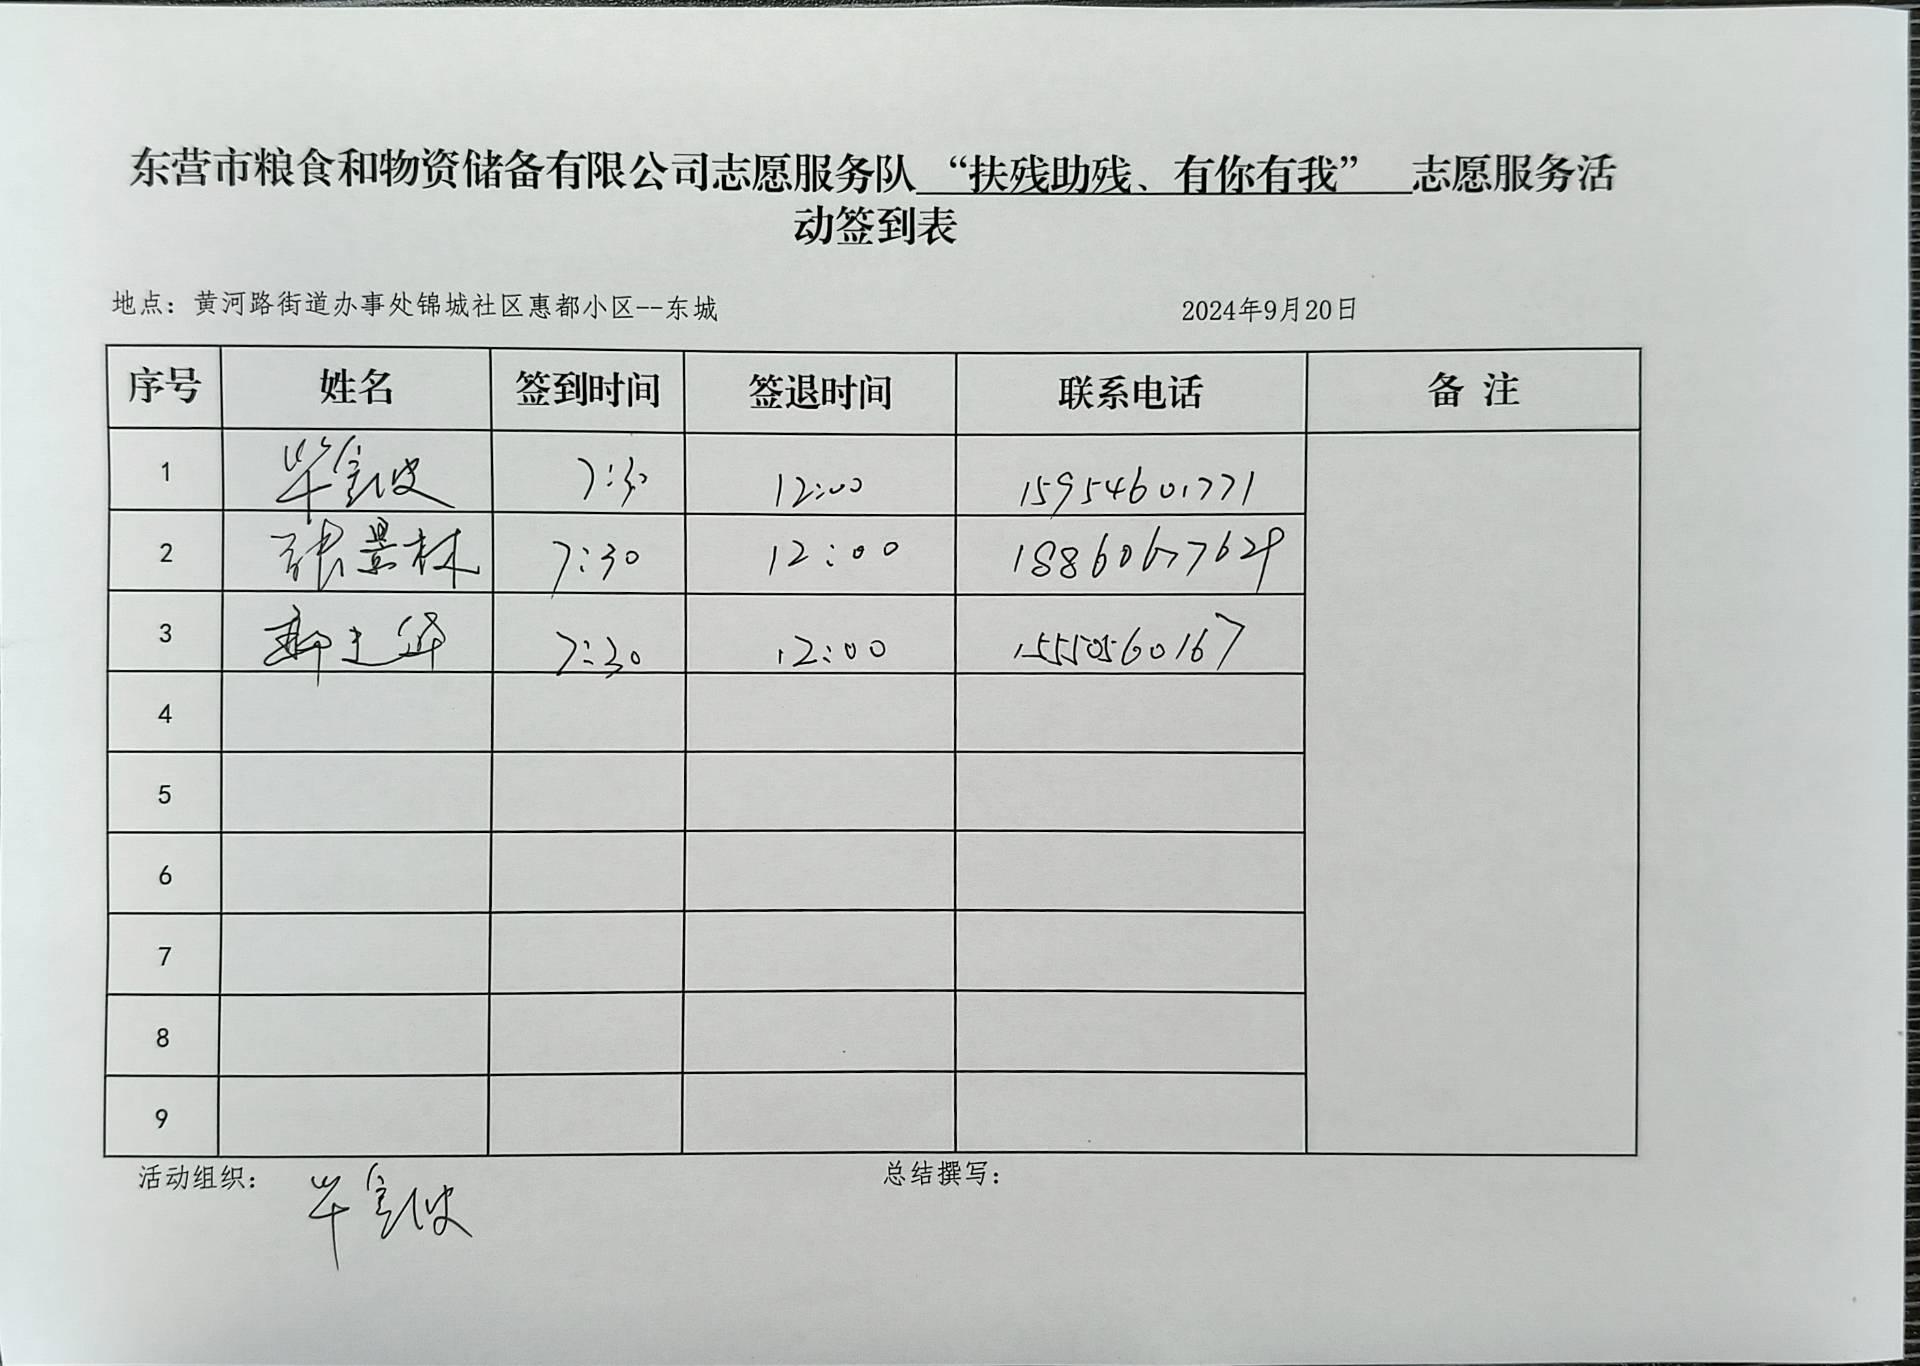 东营市粮食和物资储备有限公司志愿服务队 “扶残助残、有你有我” 志愿服务活
动签到表
地点：黄河路街道办事处锦城社区惠都小区--东城 2024年9月20日
序号 姓名 签到时间 签退时间 联系电话 备 注
1 7:30 12:00 15954601771
2 张景林 7:30 12:00 18860677629
3 7:30 12:00 15550560167
4
5
6
7
8
9
活动组织： 总结撰写：